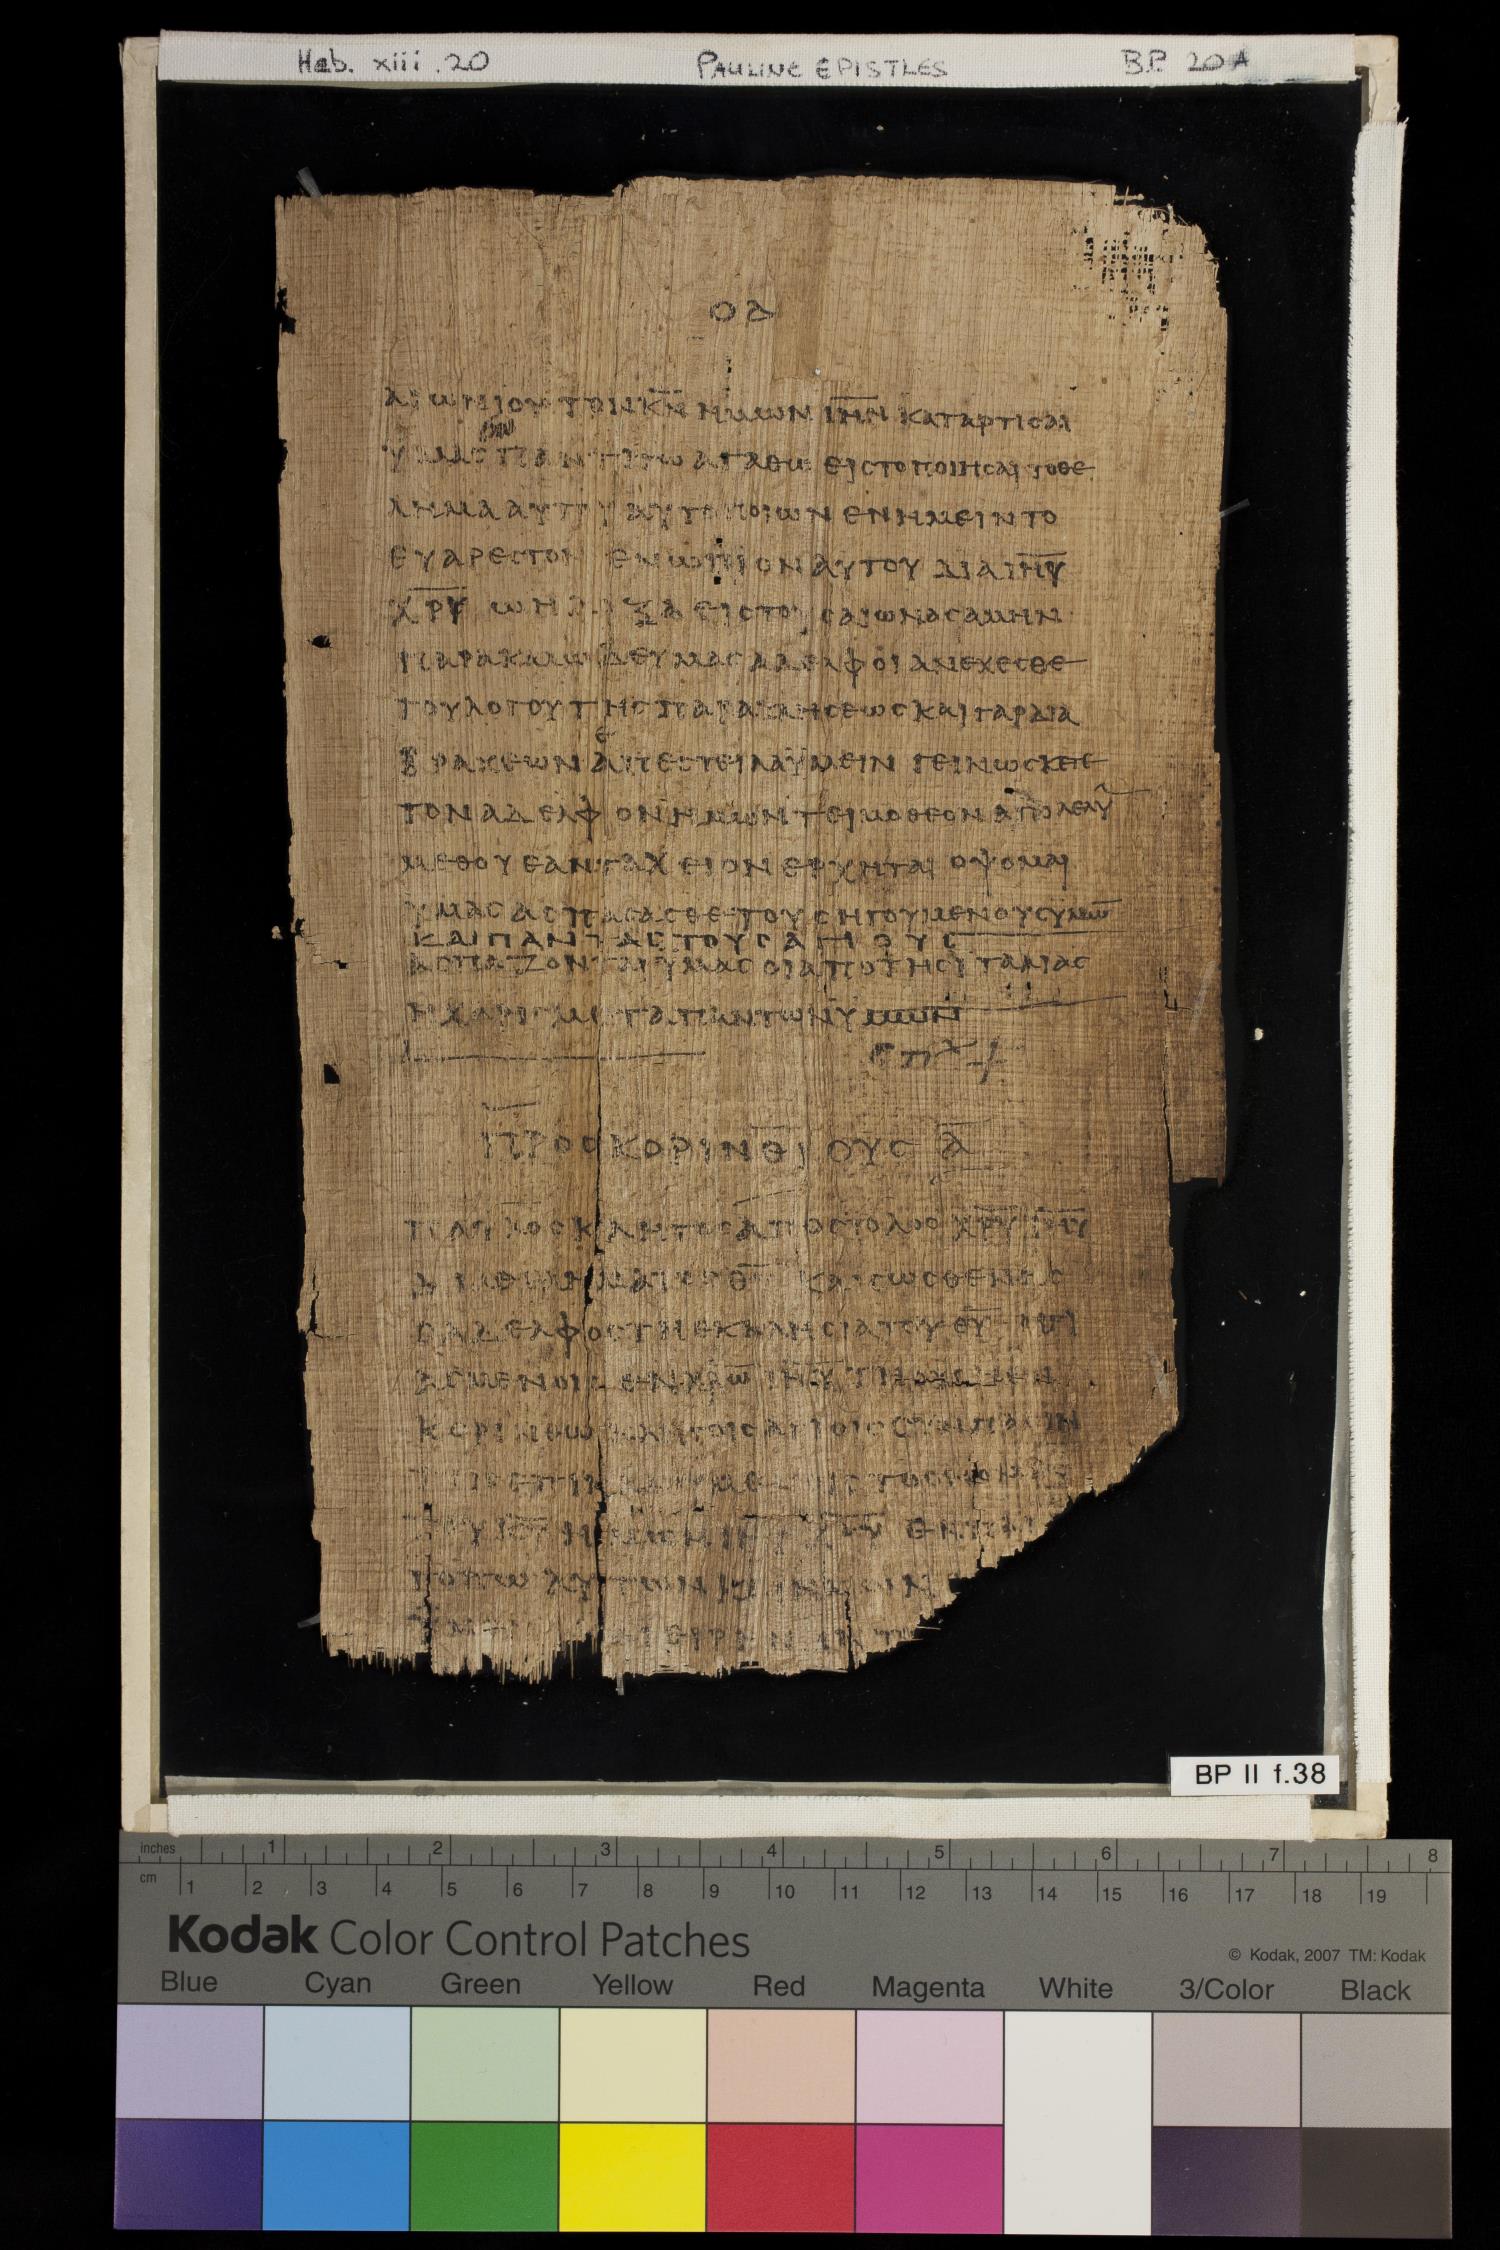 Heb. xiii. 20 PAULINE EPISTLES B.P. 20A
ΟΔ
ΑΙΩΝΙΟΥ ΤΟΝ Κ̅Ν̅ ΗΜΩΝ Ι̅Η̅Ν̅ ΚΑΤΑΡΤΙΣΑΙ
ΥΜΑΣ ΠΑΝΤΙ ΤΩ ΑΓΑΘΩ ΕΙΣ ΤΟ ΠΟΙΗΣΑΙ ΤΟ ΘΕ
ΛΗΜΑ ΑΥΤΟΥ ΑΥΤΩ ΠΟΙΩΝ ΕΝ ΗΜΕΙΝ ΤΟ
ΕΥΑΡΕΣΤΟΝ ΕΝΩΠΙΟΝ ΑΥΤΟΥ ΔΙΑ Ι̅Η̅Υ̅
Χ̅Ρ̅Υ̅ Ω Η ΔΟΞΑ ΕΙΣ ΤΟΥΣ ΑΙΩΝΑΣ ΑΜΗΝ
ΠΑΡΑΚΑΛΩ ΔΕ ΥΜΑΣ ΑΔΕΛΦΟΙ ΑΝΕΧΕΣΘΕ
ΤΟΥ ΛΟΓΟΥ ΤΗΣ ΠΑΡΑΚΛΗΣΕΩΣ ΚΑΙ ΓΑΡ ΔΙΑ
Ε
ΒΡΑΧΕΩΝ ΑΠΕΣΤΕΙΛΑ ΥΜΕΙΝ ΓΕΙΝΩΣΚΕΤΕ
ΤΟΝ ΑΔΕΛΦΟΝ ΗΜΩΝ ΤΕΙΜΟΘΕΟΝ ΑΠΟΛΕΛΥ
ΜΕΘ ΟΥ ΕΑΝ ΤΑΧΕΙΟΝ ΕΡΧΗΤΑΙ ΟΨΟΜΑΙ
ΥΜΑΣ ΑΣΠΑΣΑΣΘΕ ΤΟΥΣ ΗΓΟΥΜΕΝΟΥΣ ΥΜΩ̅
ΚΑΙ ΠΑΝΤΑΣ ΤΟΥΣ ΑΓΙΟΥΣ
ΑΣΠΑΖΟΝΤΑΙ ΥΜΑΣ ΟΙ ΑΠΟ ΤΗΣ ΙΤΑΛΙΑΣ
Η ΧΑΡΙΣ ΜΕΤΑ ΠΑΝΤΩΝ ΥΜΩΝ
ΠΡΟΣ ΚΟΡΙΝΘΙΟΥΣ Α̅
ΠΑΥΛΟΣ ΚΛΗΤΟΣ ΑΠΟΣΤΟΛΟΣ Χ̅Ρ̅Υ̅ Ι̅Η̅Υ̅
ΚΑΙ ΣΩΣΘΕΝΗΣ
Ο ΑΔΕΛΦΟΣ ΤΗ ΕΚΚΛΗΣΙΑ ΤΟΥ Θ̅Υ̅ ΗΓΙ
ΑΣΜΕΝΟΙΣ ΕΝ Χ̅Ρ̅Ω̅ Ι̅Η̅Υ̅ ΤΗ ΟΥΣΗ ΕΝ
ΚΟΡΙΝΘΩ ΚΛΗΤΟΙΣ ΑΓΙΟΙΣ ΣΥΝ ΠΑΣΙΝ
BP II f.38
inches 1 2 3 4 5 6 7 8
cm 1 2 3 4 5 6 7 8 9 10 11 12 13 14 15 16 17 18 19
Kodak Color Control Patches
© Kodak, 2007 TM: Kodak
Blue Cyan Green Yellow Red Magenta White 3/Color Black